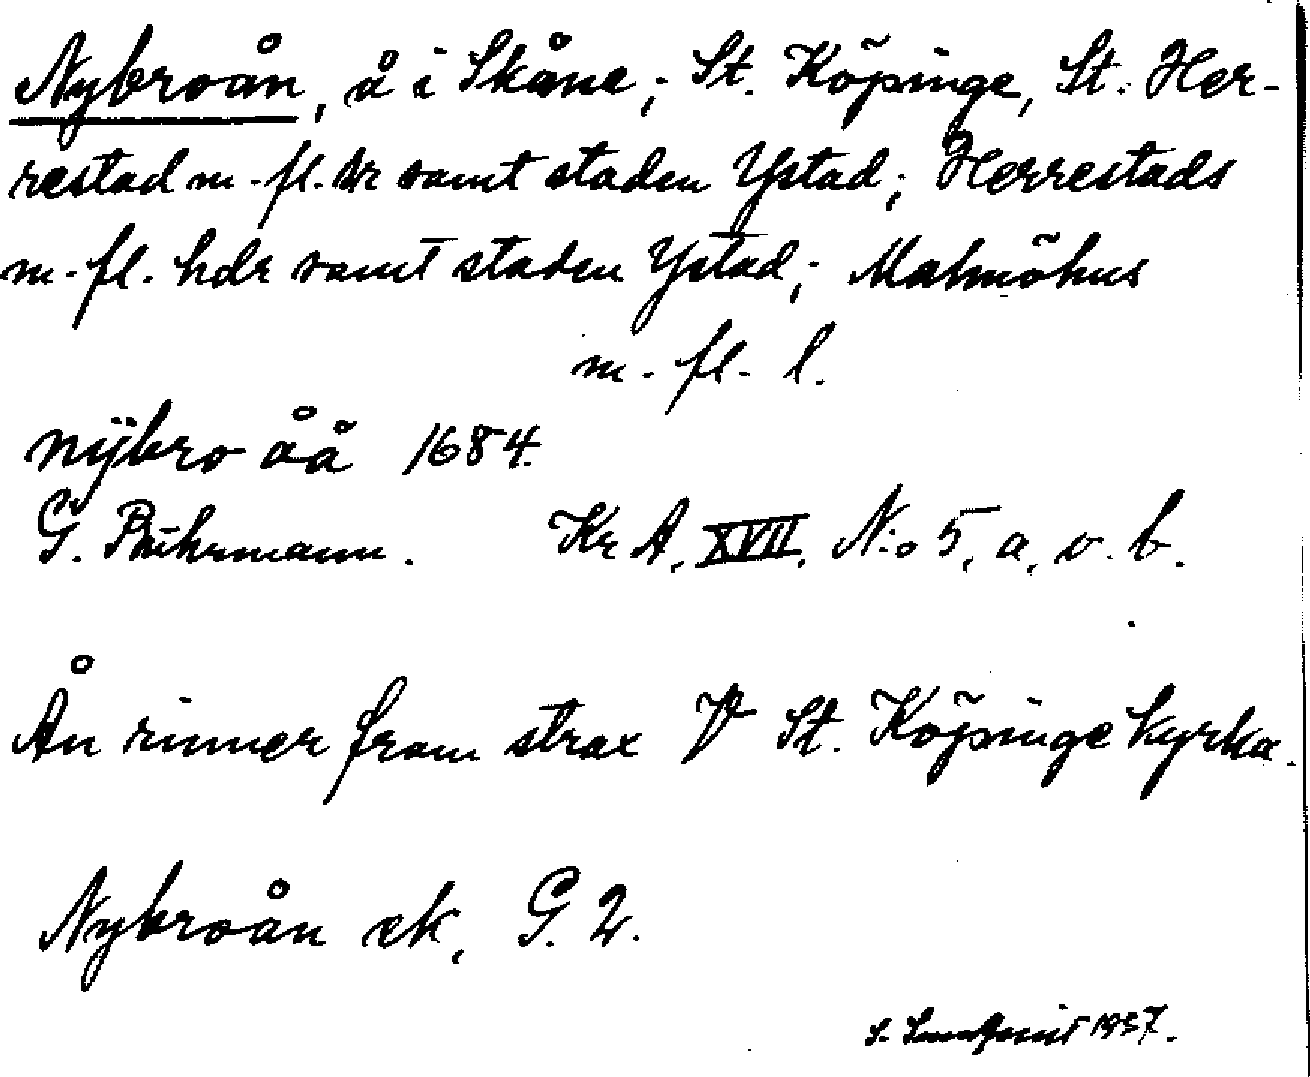 Nybroån, å i Skåne; St. Köpinge, St. Her-
restad m. fl. snr samt staden Ystad; Herrestads
m. fl. hdr samt staden Ystad; Malmöhus
m. fl. l.
nÿbro åå 1684.
G. Buhrmann. Kr A. XVII. N:o 5, a, o. b.
Ån rinner fram strax V St. Köpinge kyrka.
Nybroån ek. G. 2.
S. 1937.